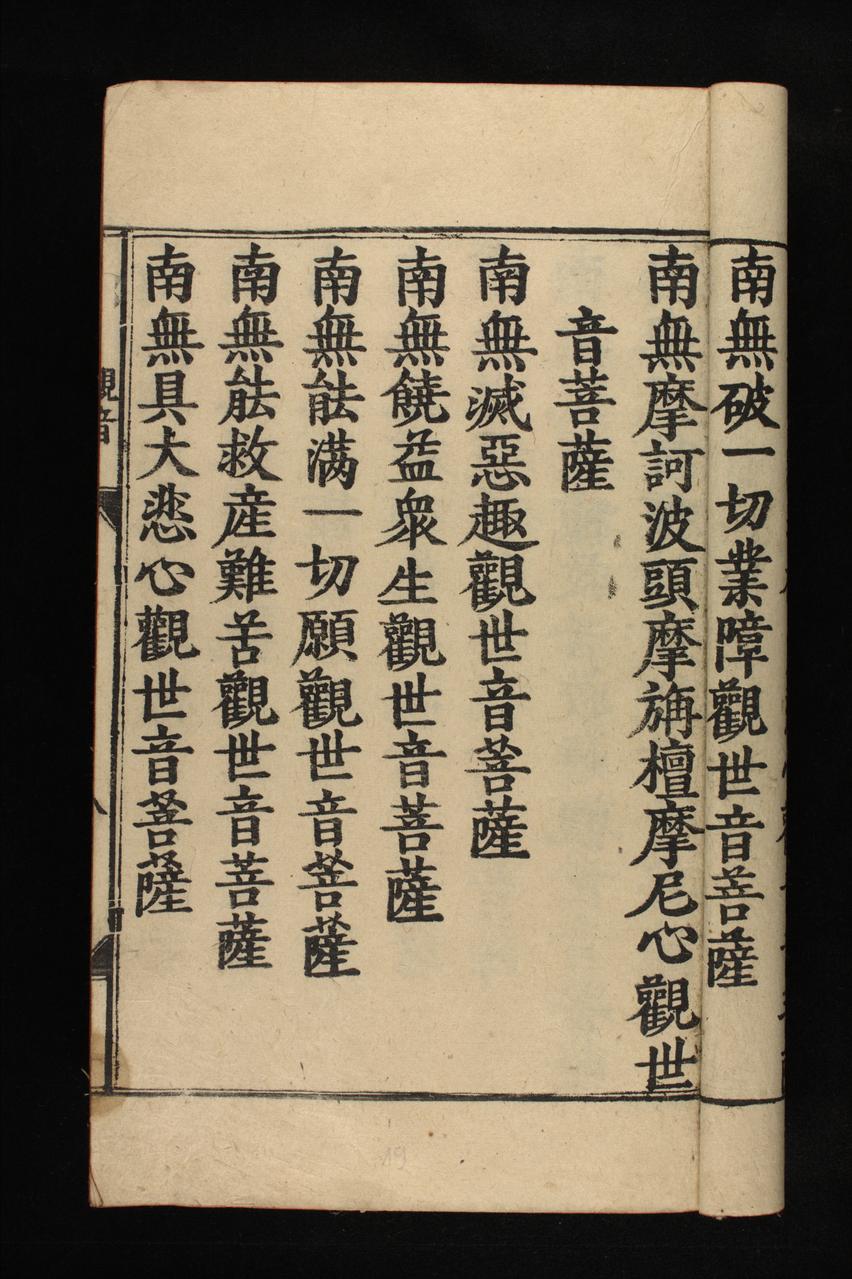 南無破一切業障觀世音菩薩
南無摩訶波頭摩旃檀摩尼心觀世
音菩薩
南無滅惡趣觀世音菩薩
南無饒益衆生觀世音菩薩
南無能滿一切願觀世音菩薩
南無能救産難苦觀世音菩薩
南無具大悲心觀世音菩薩
觀音
19